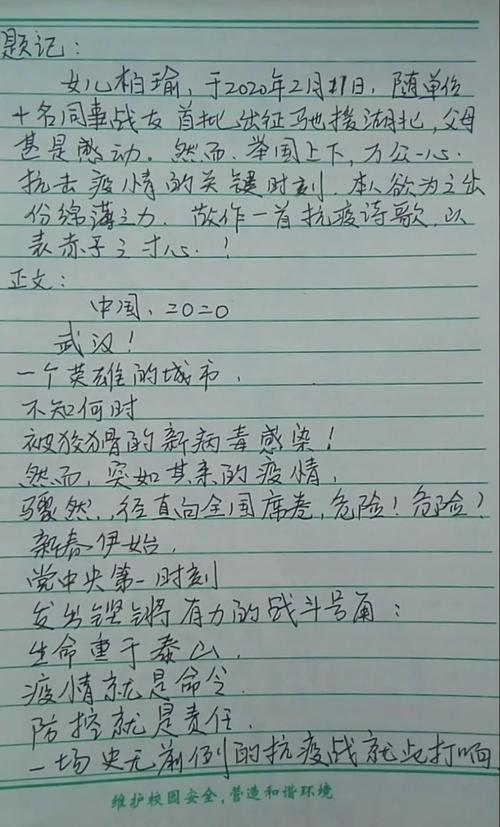 题记：
女儿柏瑜，于2020年2月21日，随单位
十名同事战友首批出征驰援湖北，父母
甚是感动。然而、举国上下，万众一心.
抗击疫情的关键时刻.本人欲为之出
份绵薄之力.敬作一首抗疫诗歌，以
表赤子之寸心.！
正文：
中国，二0二0
武汉！
一个英雄的城市，
不知何时
被狡猾的新病毒感染！
然而，突如其来的疫情，
骤然，径直向全国席卷，危险！危险！
新春伊始，
党中央第一时刻
发出铿锵有力的战斗号角：
生命重于泰山，
疫情就是命令.
防控就是责任.
一场史无前例的抗疫战就此打响
维护校园安全，营造和谐环境